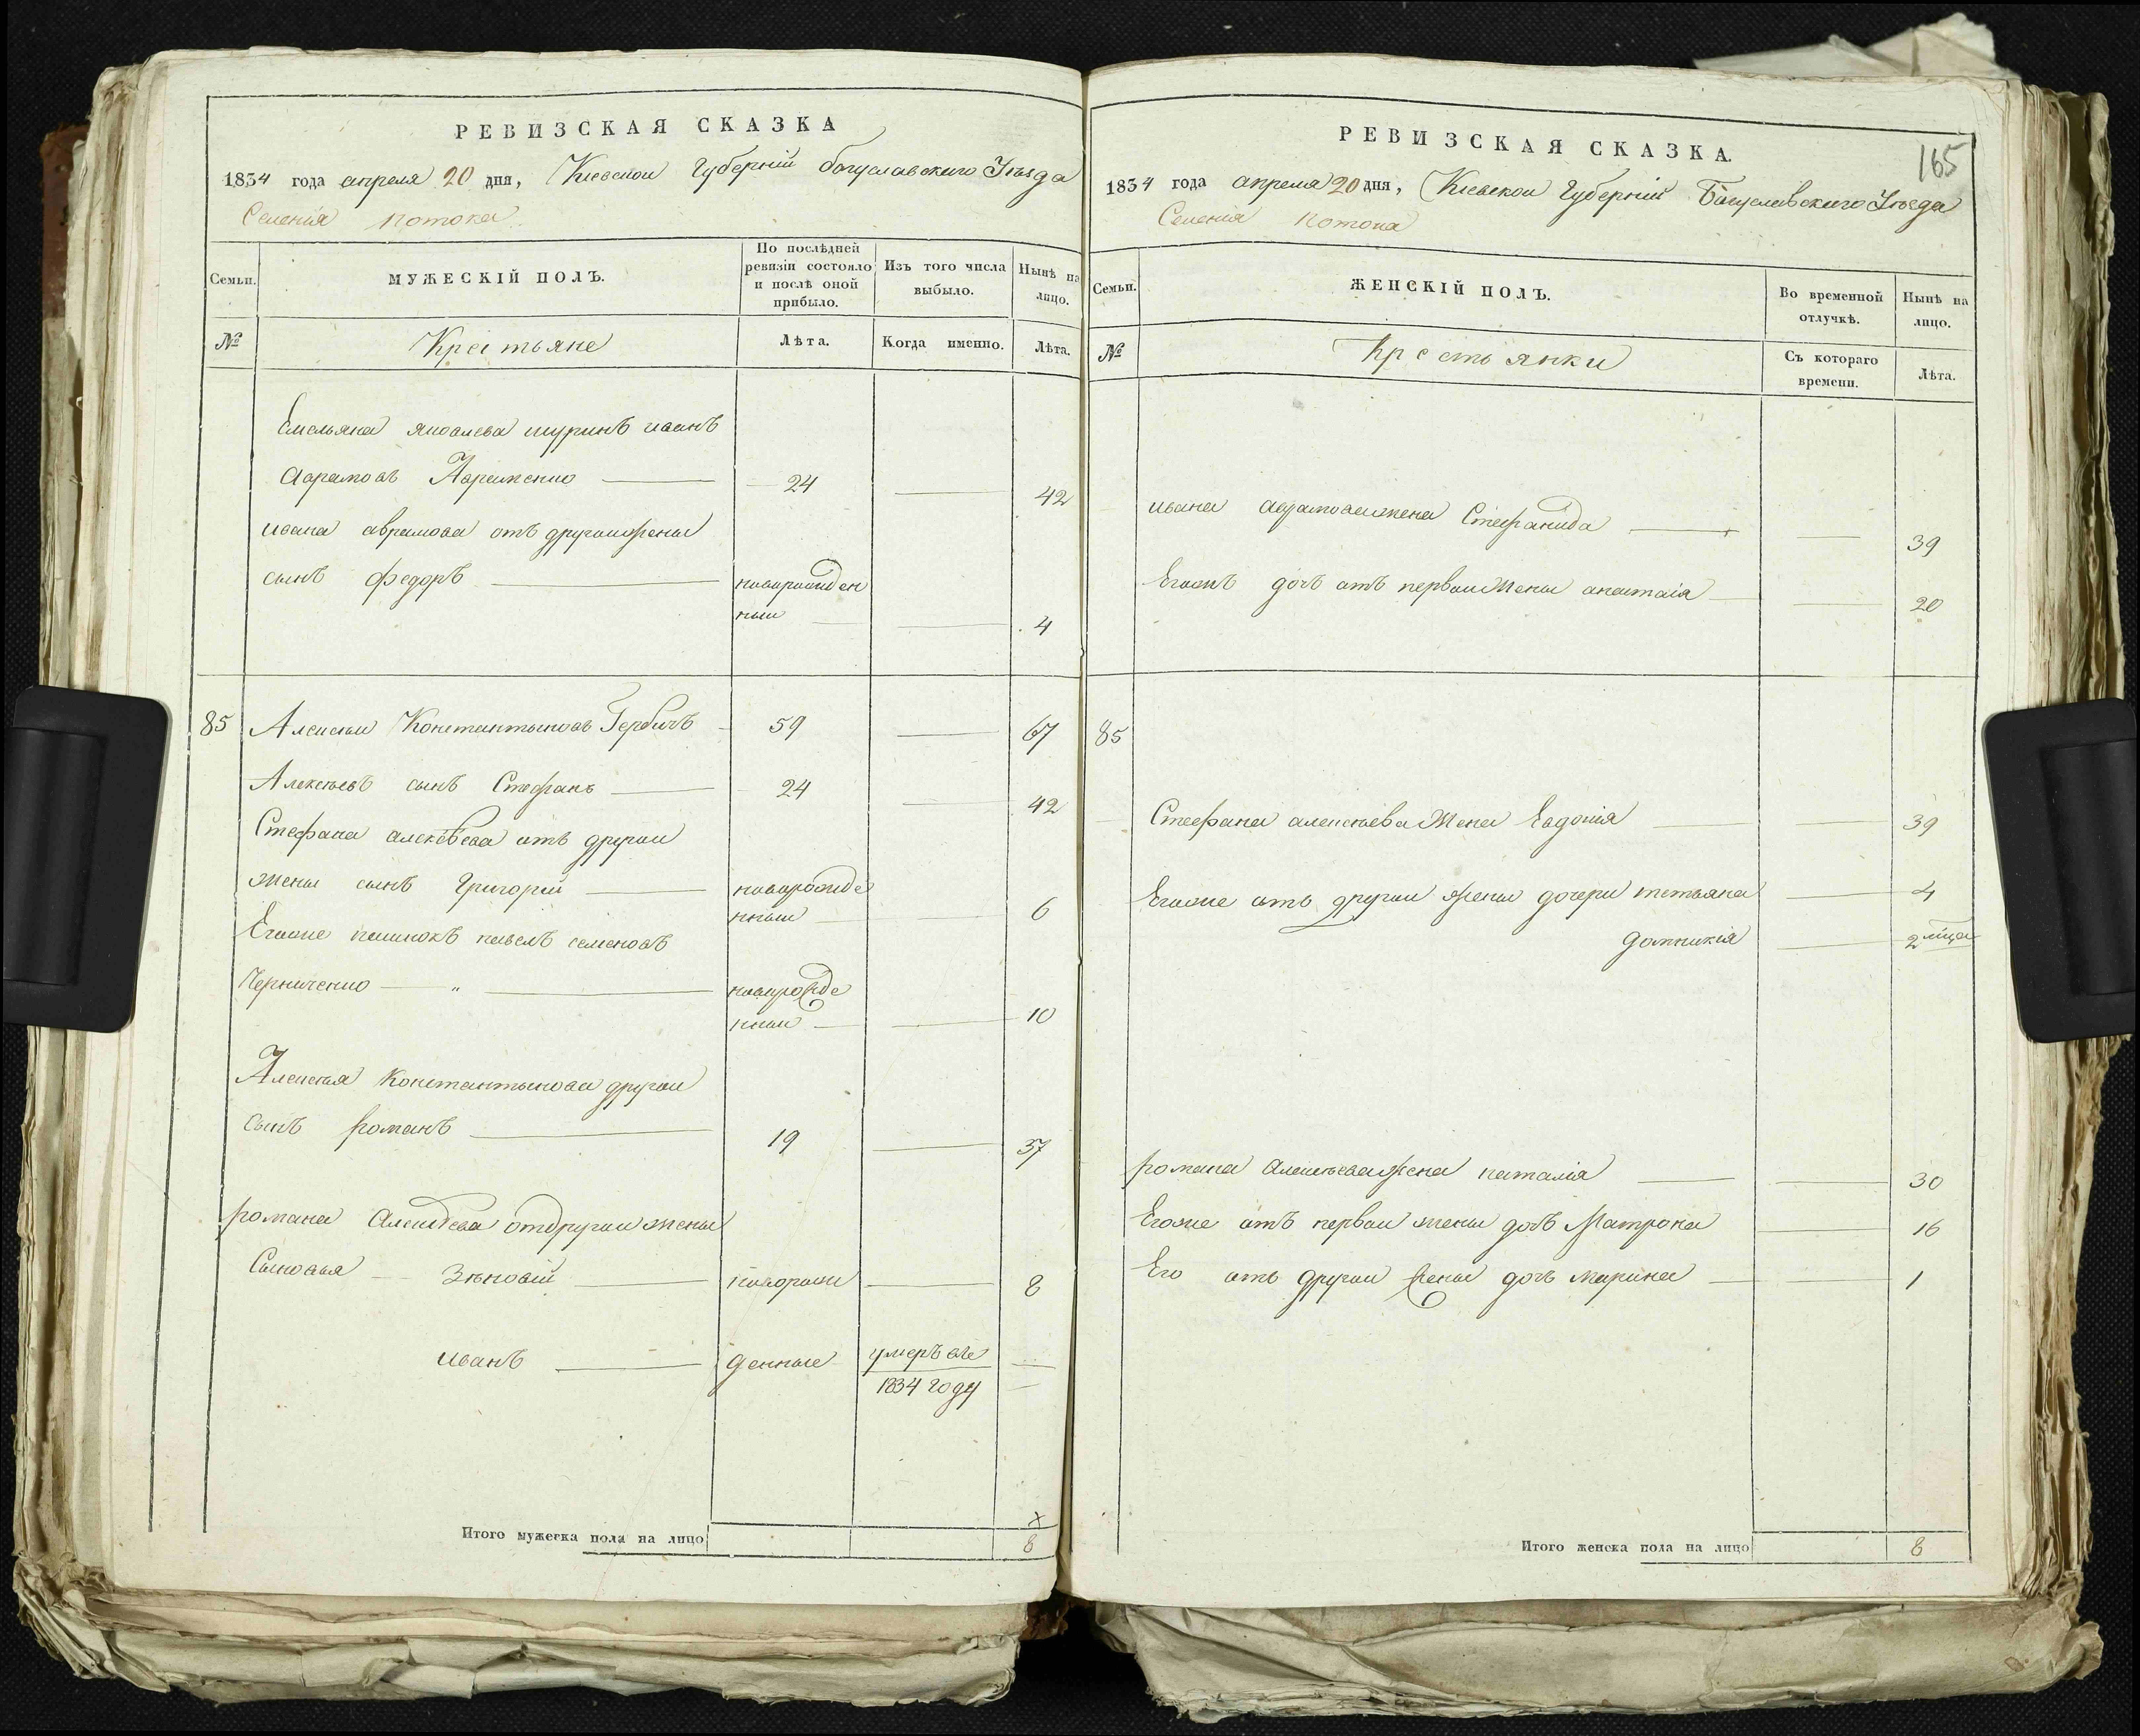 РЕВИЗСКАЯ СКАЗКА
1834 года апреля 20 дня, Киевской Губернiи богуславского Уѣзда
Селенiя потока
Семьи.
МУЖЕСКІЙ ПОЛЪ.
По послѣдней ревизіи состояло и послѣ оной прибыло.
Изъ того числа выбыло.
Нынѣ на лицо.
№
Крестьяне
Лѣта.
Когда именно.
Лѣта.
Емельяна яковлева шуринъ иванъ
аврамовъ Авраменко 24 42
ивана аврамова отъ другои жены
сынъ федоръ новорожден
ныи 4
85 Алексеи Константыновъ Гербичъ 59 67
Алексѣевъ сынъ Стефанъ 24 42
Стефана алексѣева отъ другои
жены сынъ Григорiй новорожде
нныи 6
Егоже пашнокъ павелъ семеновъ
Черниченко " новорожде
нныи 10
Алексѣя Константынова другои
сынъ романъ 19 37
романа Алексѣева отдругои жены
Сыновья Зѣновiй новорож 8
иванъ денные умеръ въ
1834 году
Итого мужеска пола на лицо 8
165
РЕВИЗСКАЯ СКАЗКА.
1834 года апреля 20 дня, Киевской Губернiи Богуславского Уѣзда
Селенiя потока
Семьи.
ЖЕНСКІЙ ПОЛЪ.
Во временной отлучкѣ.
Нынѣ на лицо.
№
Крестьянки
Съ котораго времени.
Лѣта.
ивана аврамова жена Стефанида 39
Егожъ дочъ отъ первои жены анастасiя 20
85
Стефана алексѣева жена Евдокiя 39
Егоже отъ другои жены дочери татьяна 4
домникiя 2
романа Алексѣева жена наталiя 30
Егоже отъ первои жены дочъ Матрона 16
Его отъ другои жены дочъ марина 1
Итого женска пола на лицо 8